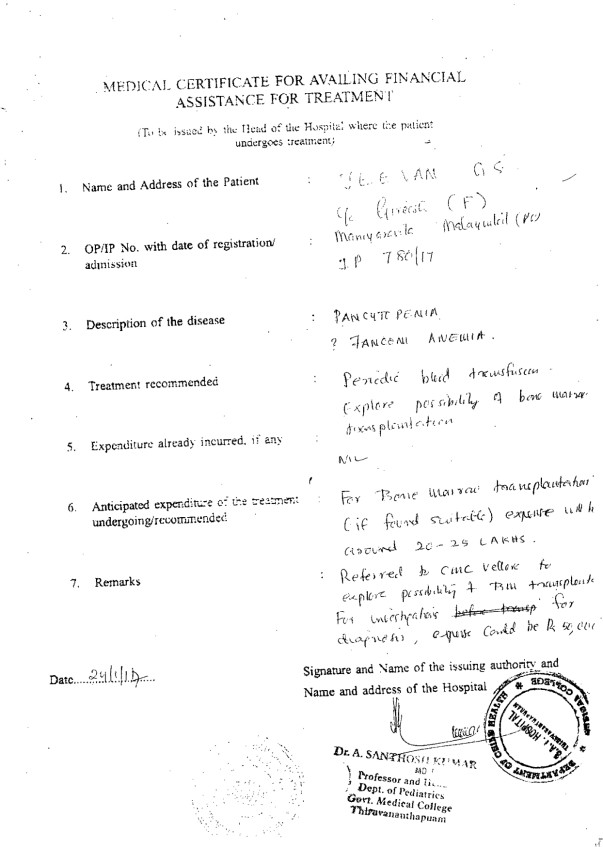 MEDICAL CERTIFICATE FOR AVAILING FINANCIAL
ASSISTANCE FOR TREATMENT
(To be issued by the Head of the Hospital where the patient
undergoes treatment)
1. Name and Address of the Patient : JEEVAN G S
(F)
2. OP/IP No. with date of registration/
admission :
IP 780/17
3. Description of the disease : PANCYTOPENIA
? FANCONI ANEMIA.
4. Treatment recommended : Periodic blood transfusion.
Explore possibility of bone marrow
transplantation
5. Expenditure already incurred, if any :
NIL
6. Anticipated expenditure of the treatment
undergoing/recommended :
For Bone Marrow transplantation
(if found suitable) expense will
around 20-25 LAKHS.
7. Remarks : Referred to CMC Vellore to
explore possibility of BM transplant
For investigations for
diagnosis, expense could be Rs
Date
Signature and Name of the issuing authority and
Name and address of the Hospital
Dr. A. SANTHOSH KUMAR
MD
Professor and
Dept. of Pediatrics
Govt. Medical College
Thiruvananthapuam
DEPARTMENT OF CHILD HEALTH
MEDICAL COLLEGE
S.A.T. HOSPITAL